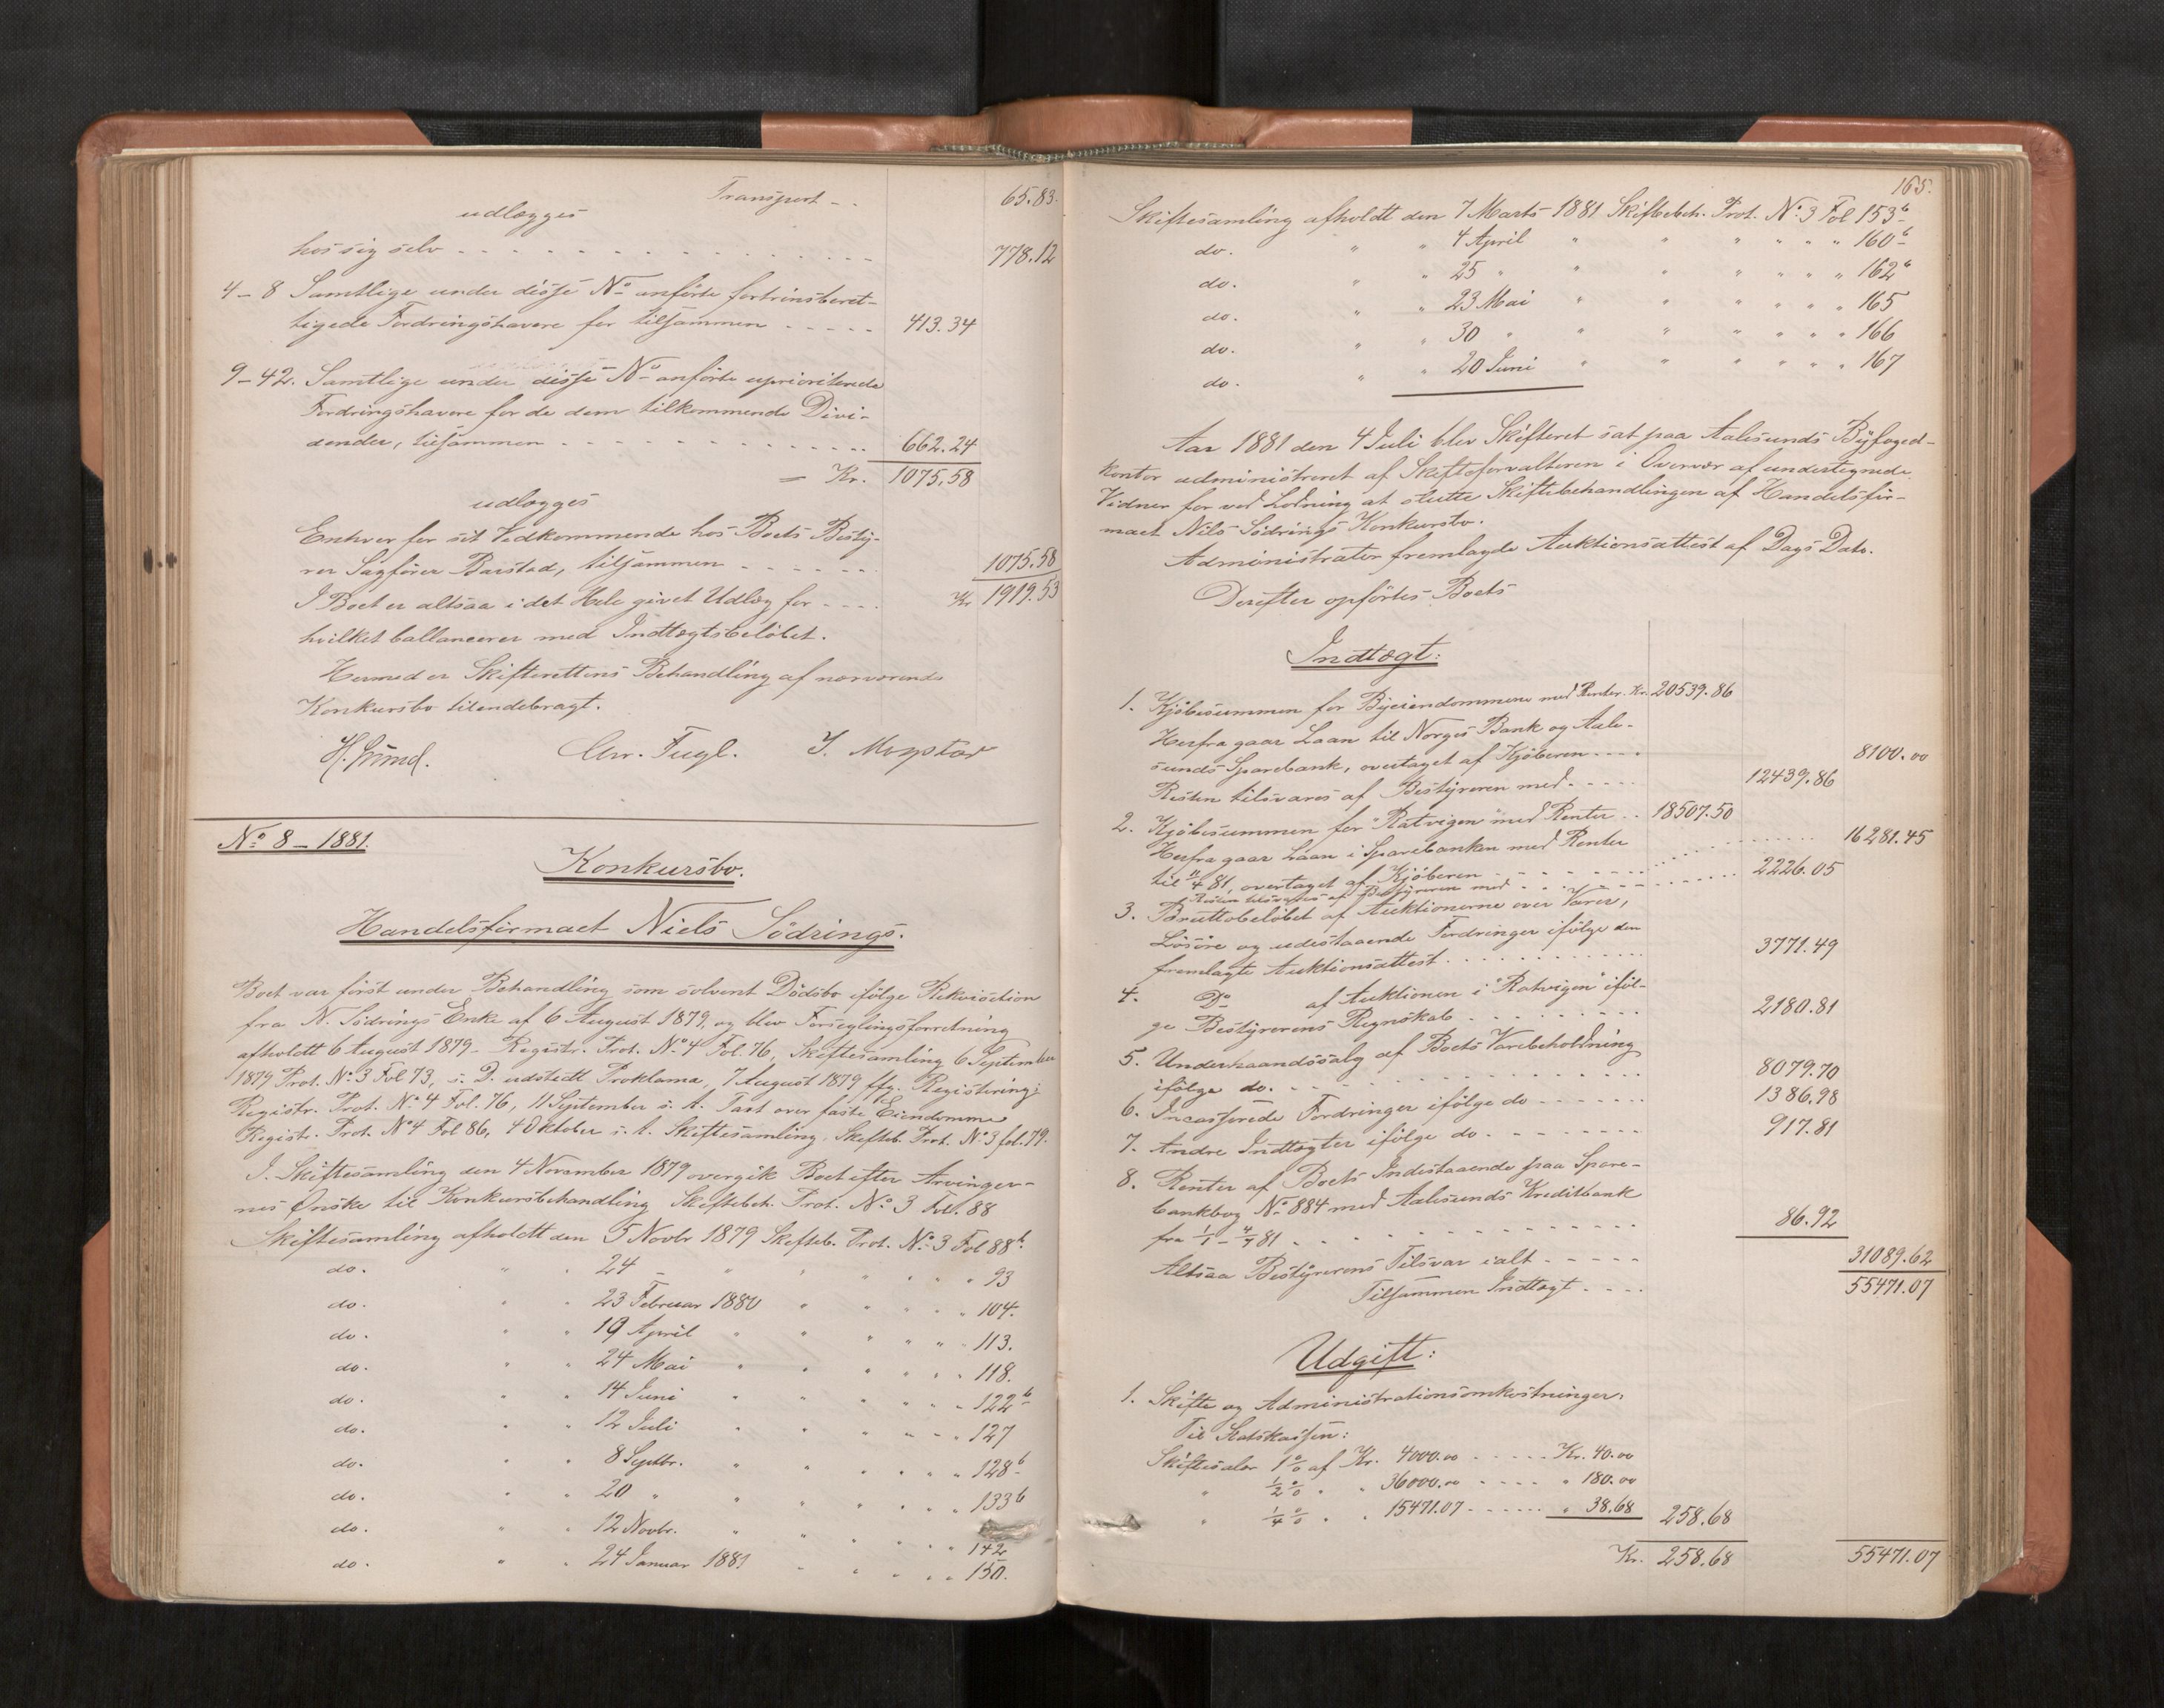 Transport - . 65.83.
udlægges
hos sig selv - - - - - - - - - - 778.12
4-8 Samtlige under disse No anførte fortrinsberet-
tigede Fordringshavere for tilsammen - - - - - 413.34
9-42. Samtlige under disse No anførte uprioriterede
Fordringshavere for de dem tilkommende Divi-
dender, tilsammen - - - - - - - - 662.24
= Kr. 1075.58
udlægges
Enhver for sit Vedkommende hos Boets Besty-
rer Sagfører Barstad, tilsammen - - - - - - 1075.58
I Boet er altsaa i det Hele givet Udlæg for - - - - Kr 1919.53
hvilket ballancerer med Indtægtsbeløbet.
Hermed er Skifterettens Behandling af nærværende
Konkursbo tilendebragt.
Chr. Fugl.
No 8 - 1881.
Konkursbo.
Handelsfirmaet Niels Södrings.
Boet var først under Behandling som solvent Dödsbo ifölge Rekvisition
fra N. Södrings Enke af 6 August 1879, og blev Forseglingsforretning
afholdt 6 August 1879 - Registr. Prot. No 4 Fol. 76, Skiftesamling 6 September
1879 Prot. No 3 Fol 73, s. D. udstedt Proklama, 7 August 1879 ffg. Registrering:
Registr. Prot. No 4 Fol. 76, 11 September s. A. Taxt over faste Eiendomme
Registr. Prot. No 4 Fol 86, 4 Oktober s. A. Skiftesamling. Skifteb. Prot. No 3 fol. 79.
I Skiftesamling den 4 November 1879 overgik Boet efter Arvinger-
nes Önske til Konkursbehandling Skiftebeh. Prot. No 3 Fol. 88
Skiftesamling afholdt den 5 Novbr 1879 Skifteb. Prot. No 3 Fol 88b.
do. " " 24 - " " " " " 93
do. " " 23 Februar 1880 " " " " " 104.
do. " " 19 April " " " " " 113.
do. " " 24 Mai " " " " " 118.
do. " " 14 Juni " " " " " 122b
do. " " 12 Juli " " " " " 127
do. " " 8 Septbr. " " " " " 128b
do. " " 20 " " " " " " 133b
do. " " 12 Novbr. " " " " " 142
do. " " 24 Januar 1881 " " " " " 150.
165.
Skiftesamling afholdt den 7 Marts 1881 Skiftebeh. Prot. No 3 Fol 153b
do. " " 4 April " " " " " " 160b
do. " " 25 " " " " " " " 162b
do. " " 23 Mai " " " " " " 165
do. " " 30 " " " " " " " 166
do. " " 20 Juni " " " " " " 167
Aar 1881 den 4 Juli blev Skifteret sat paa Aalesunds Byfoged-
kontor administreret af Skifteforvalteren i Overvær af undertegnede
Vidner for ved Lodning at slutte Skiftebehandlingen af Handelsfir-
maet Nils Södrings Konkursbo.
Administrator fremlagde Auktionsattest af Dags Dato.
Derefter opförtes Boets
Indtægt:
1. Kjøbesummen for Byeiendommene med Renter. Kr. 20539.86
Herfra gaar Laan til Norges Bank og Aale-
sunds Sparebank, overtaget af Kjøberen - - - - 8100.00
Resten tilsvares af Bestyreren med - - - - - 12439.86
2. Kjøbesummen for "Ratvigen" med Renter . . 18507.50
Herfra gaar Laan i Sparebanken med Renter
til 11/4 81, overtaget af Kjøberen - - - - - - 16281.45
Resten tilsvares af Bestyreren med - - - - - 2226.05
3. Bruttobeløbet af Auktionerne over Varer,
Løsøre og udestaaende Fordringer ifølge den
fremlagte Auktionsattest . . . . . . . . . . 3771.49
4. Do af Auktionen i "Ratvigen" iføl-
ge Bestyrerens Regnskab . . . . . . . . . . 2180.81
5. Underhaandssalg af Boets Varebeholdning
ifølge do. - - - - - - - - - - 8079.70
6. Incasserede Fordringer ifølge do - - - - - - - 1386.98
7. Andre Indtægter ifølge do. - - - - - - - - 917.81
8. Renter af Boets Indestaaende paa Spare-
bankbog No 884 med Aalesunds Kreditbank
fra 1/1 - 4/7 81 - - - - - - - - - - 86.92
Altsaa Bestyrerens Tilsvar ialt - - - - - 31089.62
Tilsammen Indtægt - - - - 55471.07
Udgift:
1. Skifte og Administrationsomkostninger:
Til Statskassen:
Skiftesalær 1 0/0 af Kr. 4000.00 - - - - - Kr. 40.00
" 1/2 0/0 " " 36000.00 - - - - " 180.00
" 1/4 0/0 " " 15471.07 - - - - - - " 38.68 258.68
Kr. 258.68 55471.07